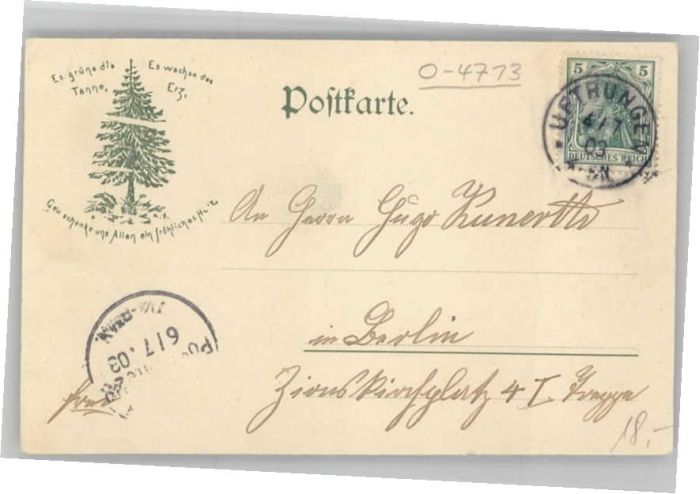 Es grüne die Tanne,
Es wachse das Erz,
Gott schenke uns Allen ein fröhliches Herz
Postkarte.
O-4713
5 5
DEUTSCHES REICH
UFTRUNGEN
6/7
03
N
An Herrn Hugo Kunertte
in Berlin
Zionskirchplatz 4 I Treppe
frei
6/7.03
18.-